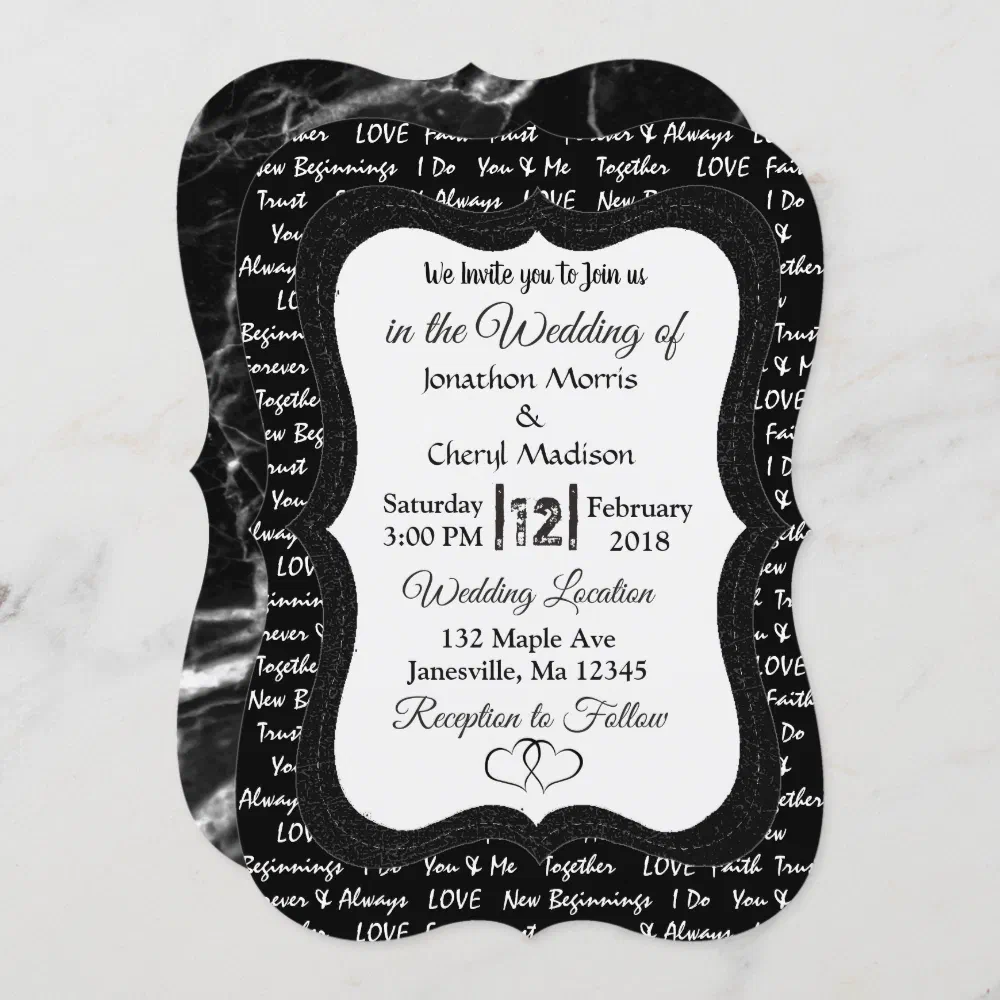 LOVE Faith Trust Forever & Always
New Beginnings I Do You & Me Together LOVE Faith
Trust Always LOVE New I Do
You &
Always Together
LOVE
Beginnings Trust
Forever & Me
Together LOVE
New Beginnings Faith
Trust I Do
You &
Always Together
LOVE New
Beginnings Trust
Forever & You &
Together LOVE
New B Faith
Trust Do
You &
Always Together
LOVE New
Beginnings I Do You & Me Together LOVE Faith Trust
Forever & Always LOVE New Beginnings I Do You &
LOVE & Always
We Invite you to Join us
in the Wedding of
Jonathon Morris
&
Cheryl Madison
Saturday 12 February
3:00 PM 2018
Wedding Location
132 Maple Ave
Janesville, Ma 12345
Reception to Follow